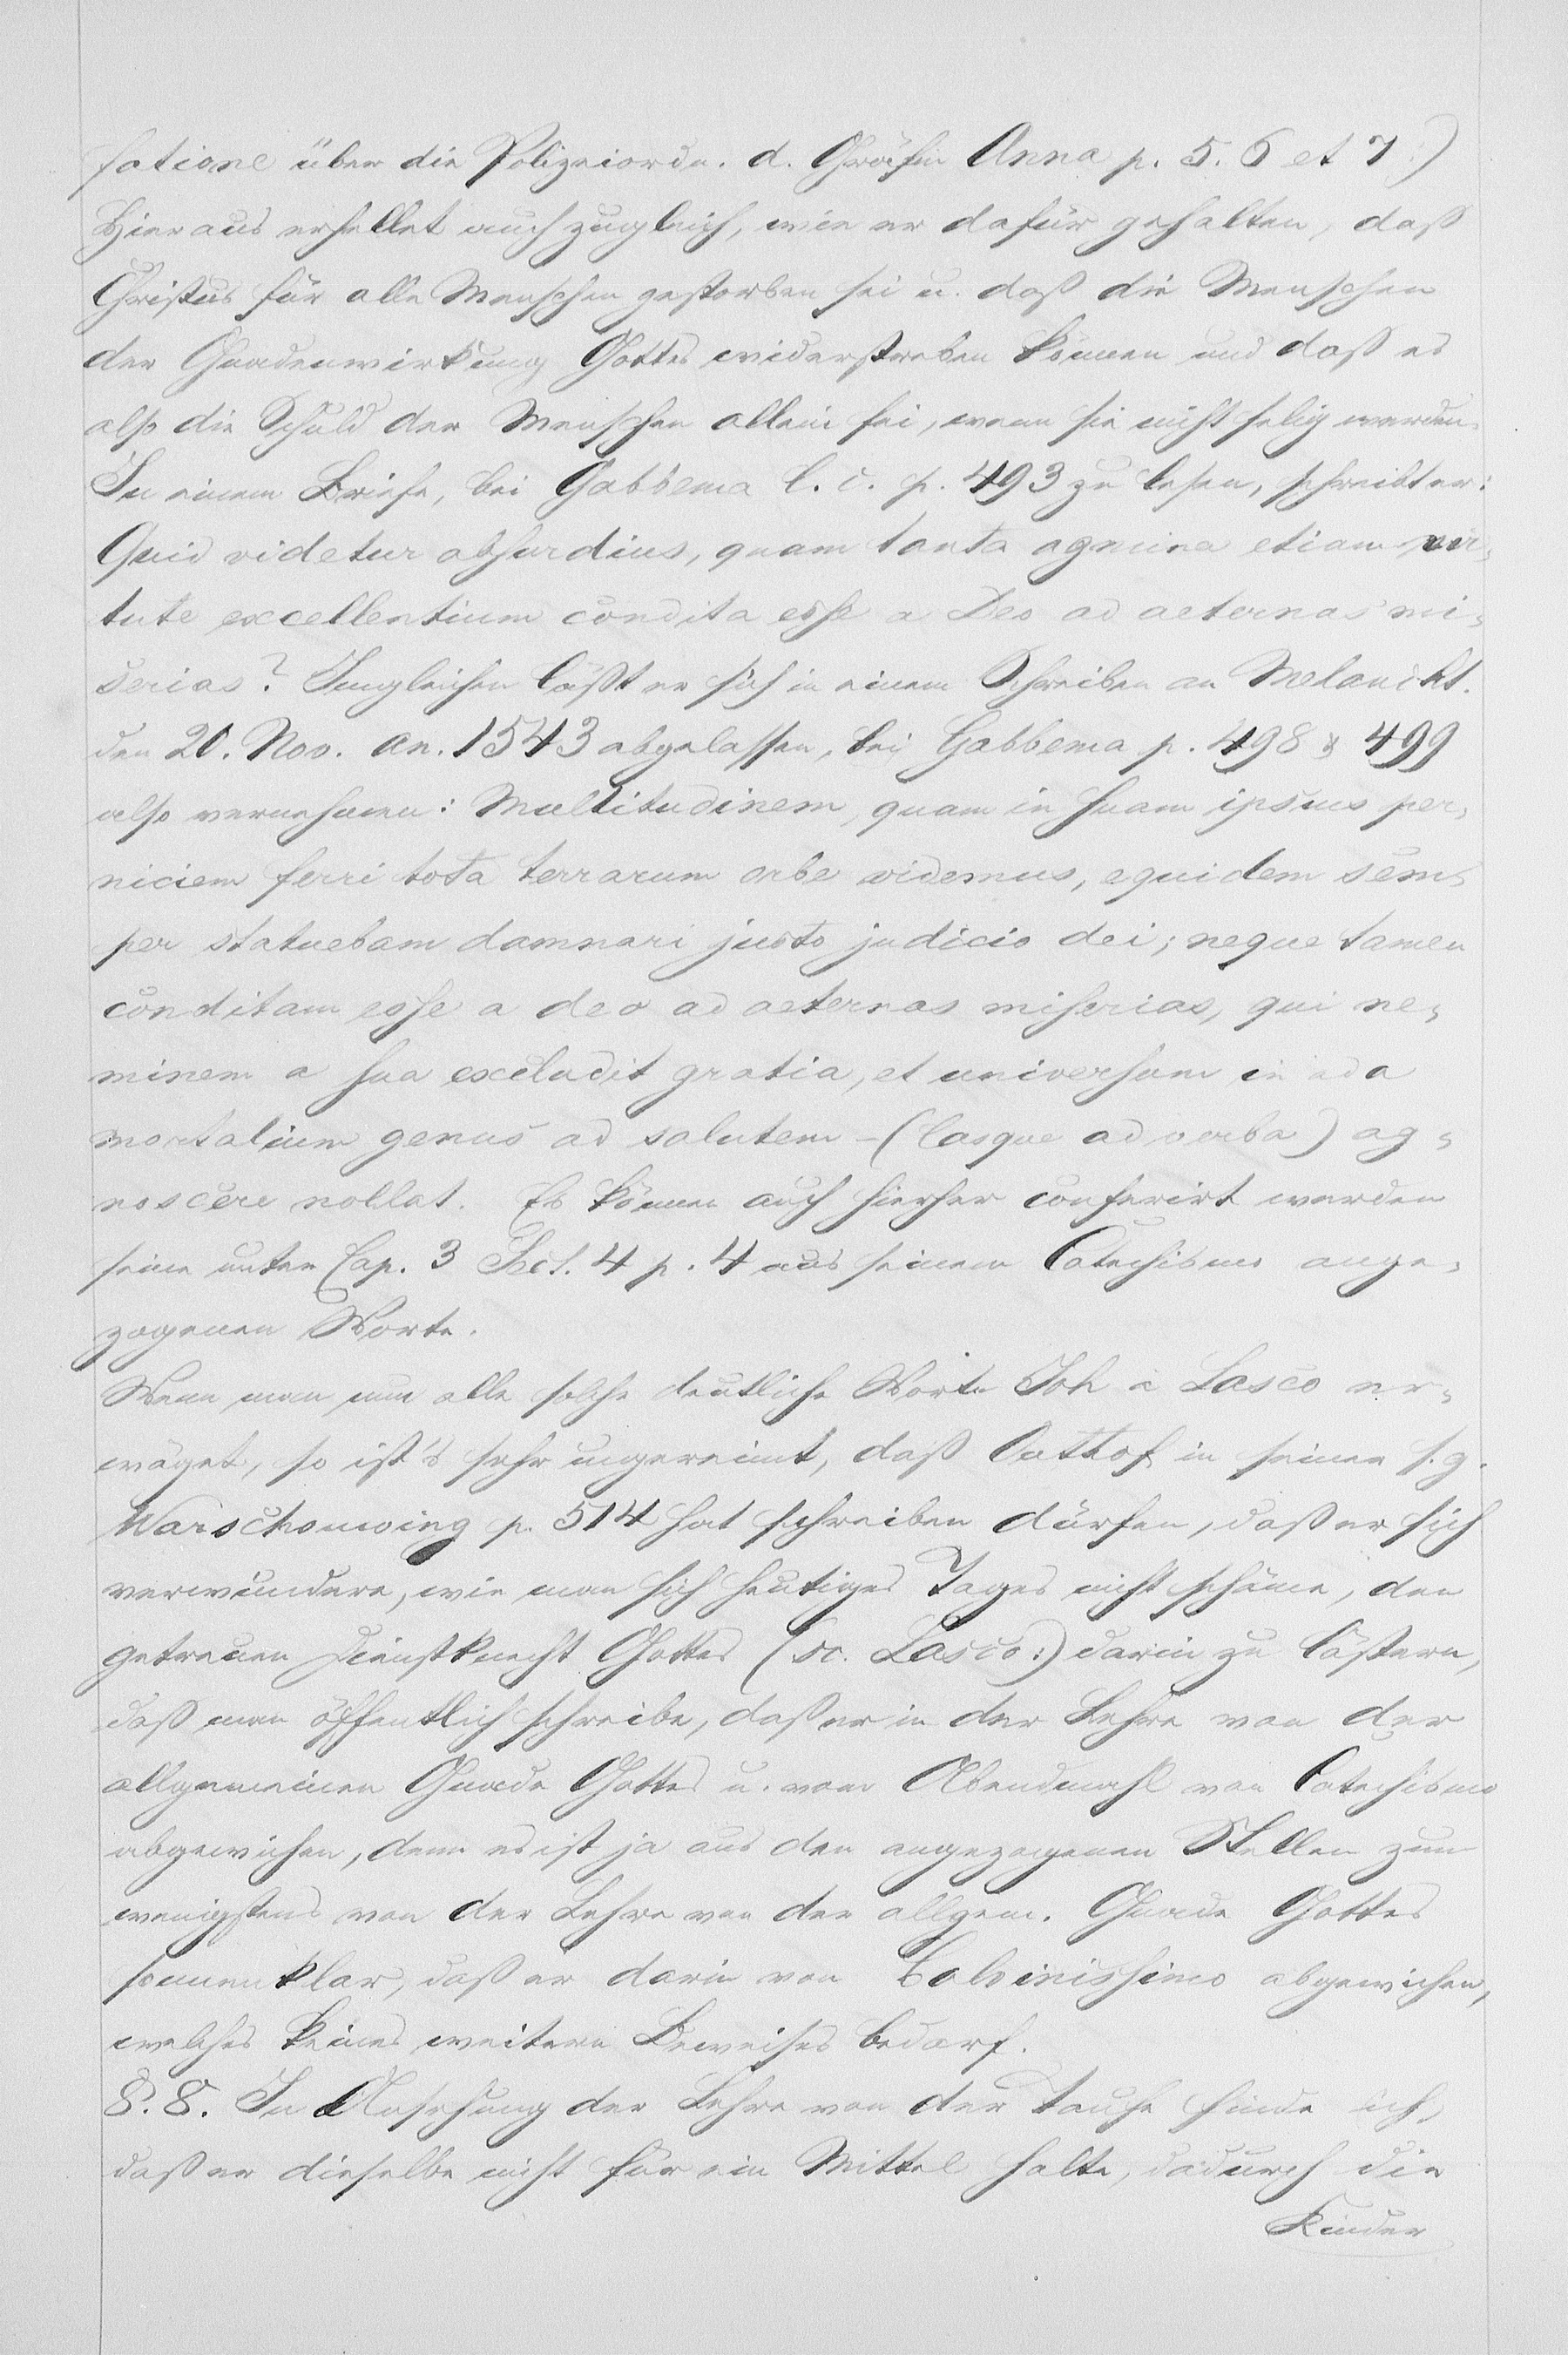 fatione über die Polizeiordn. d. Gräfin Anna p. 5. 6 et 7:)
Hieraus erhellet auch zugleich, wie er dafür gehalten, daß
Christus für alle Menschen gestorben sei u. daß die Menschen
der Gnadenwirkung Gottes widerstreben können und daß es
also die Schuld der Menschen allein sei, wenn sie nicht selig werden.
In einem Briefe, bei Gabbema l. c. p. 493 zu lesen, schreibt er:
Quid videtur absurdius, quam tanta agmina etiam vir-
tute excellentium condita esse a Deo ad aeternas mi-
serias? Imgleichen läßt er sich in einem Schreiben an Melancht.
den 20. Nov. an. 1543 abgelassen, bei Gabbema p. 498 & 499
also vernehmen: Multitudinem, quam in suam ipsius per-
niciem ferri tota terrarum orbe videmus, equidem sem-
per statuebam damnari justo judicio dei; neque tamen
conditam esse a deo ad aeternas miserias, qui ne-
minem a sua excludit gratia, et universum in ada
mortalium genus ad salutem – (lasque ad verba) ag-
noscere nollat. Es können auch hierher conferirt werden
seine unter Cap. 3 Sect. 4 p. 4 aus seinem Catechismo ange-
zogenen Worte.
Wenn man nun alle solche deutliche Worte Joh a Lasco er-
wäget, so ist's sehr ungereimt, daß Outhof in seiner s. g.
Warschouwing p. 514 hat schreiben dürfen, daß er sich
verwundere, wie man sich heutiges Tages nicht schäme, den
getreuen Dienstknecht Gottes (sc. Lasco:) darin zu lästern,
daß man öffentlich schreibe, daß er in der Lehre von der
allgemeinen Gnade Gottes u. vom Abendmahl von Catechismo
abgewichen, denn es ist ja aus den angezogenen Stellen zum
wenigstens von der Lehre von der allgem. Gnade Gottes
sonnenklar, daß er darin von Calvinissimo abgewichen,
welches keines weitern Beweises bedarf.
§. 8. In Ansehung der Lehre von der Taufe finde ich,
daß er dieselbe nicht für ein Mittel halte, dadurch die
Kinder